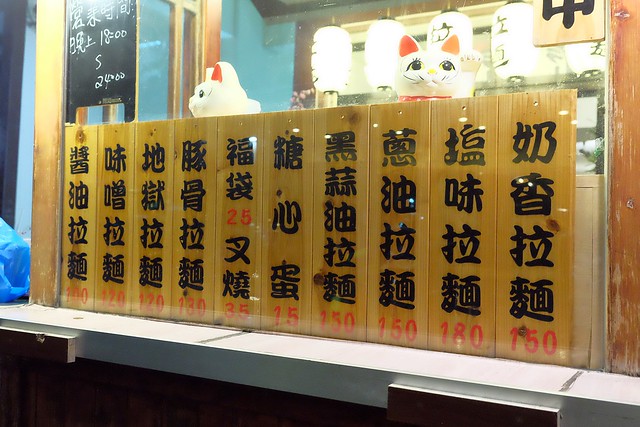 營業時間:
晚上 18:00
S
24:00
奶香拉麵 150
塩味拉麵 180
蔥油拉麵 150
黑蒜油拉麵 150
糖心蛋 15
福袋 25 叉燒 35
豚骨拉麵 130
地獄拉麵 120
味噌拉麵 120
醬油拉麵 100